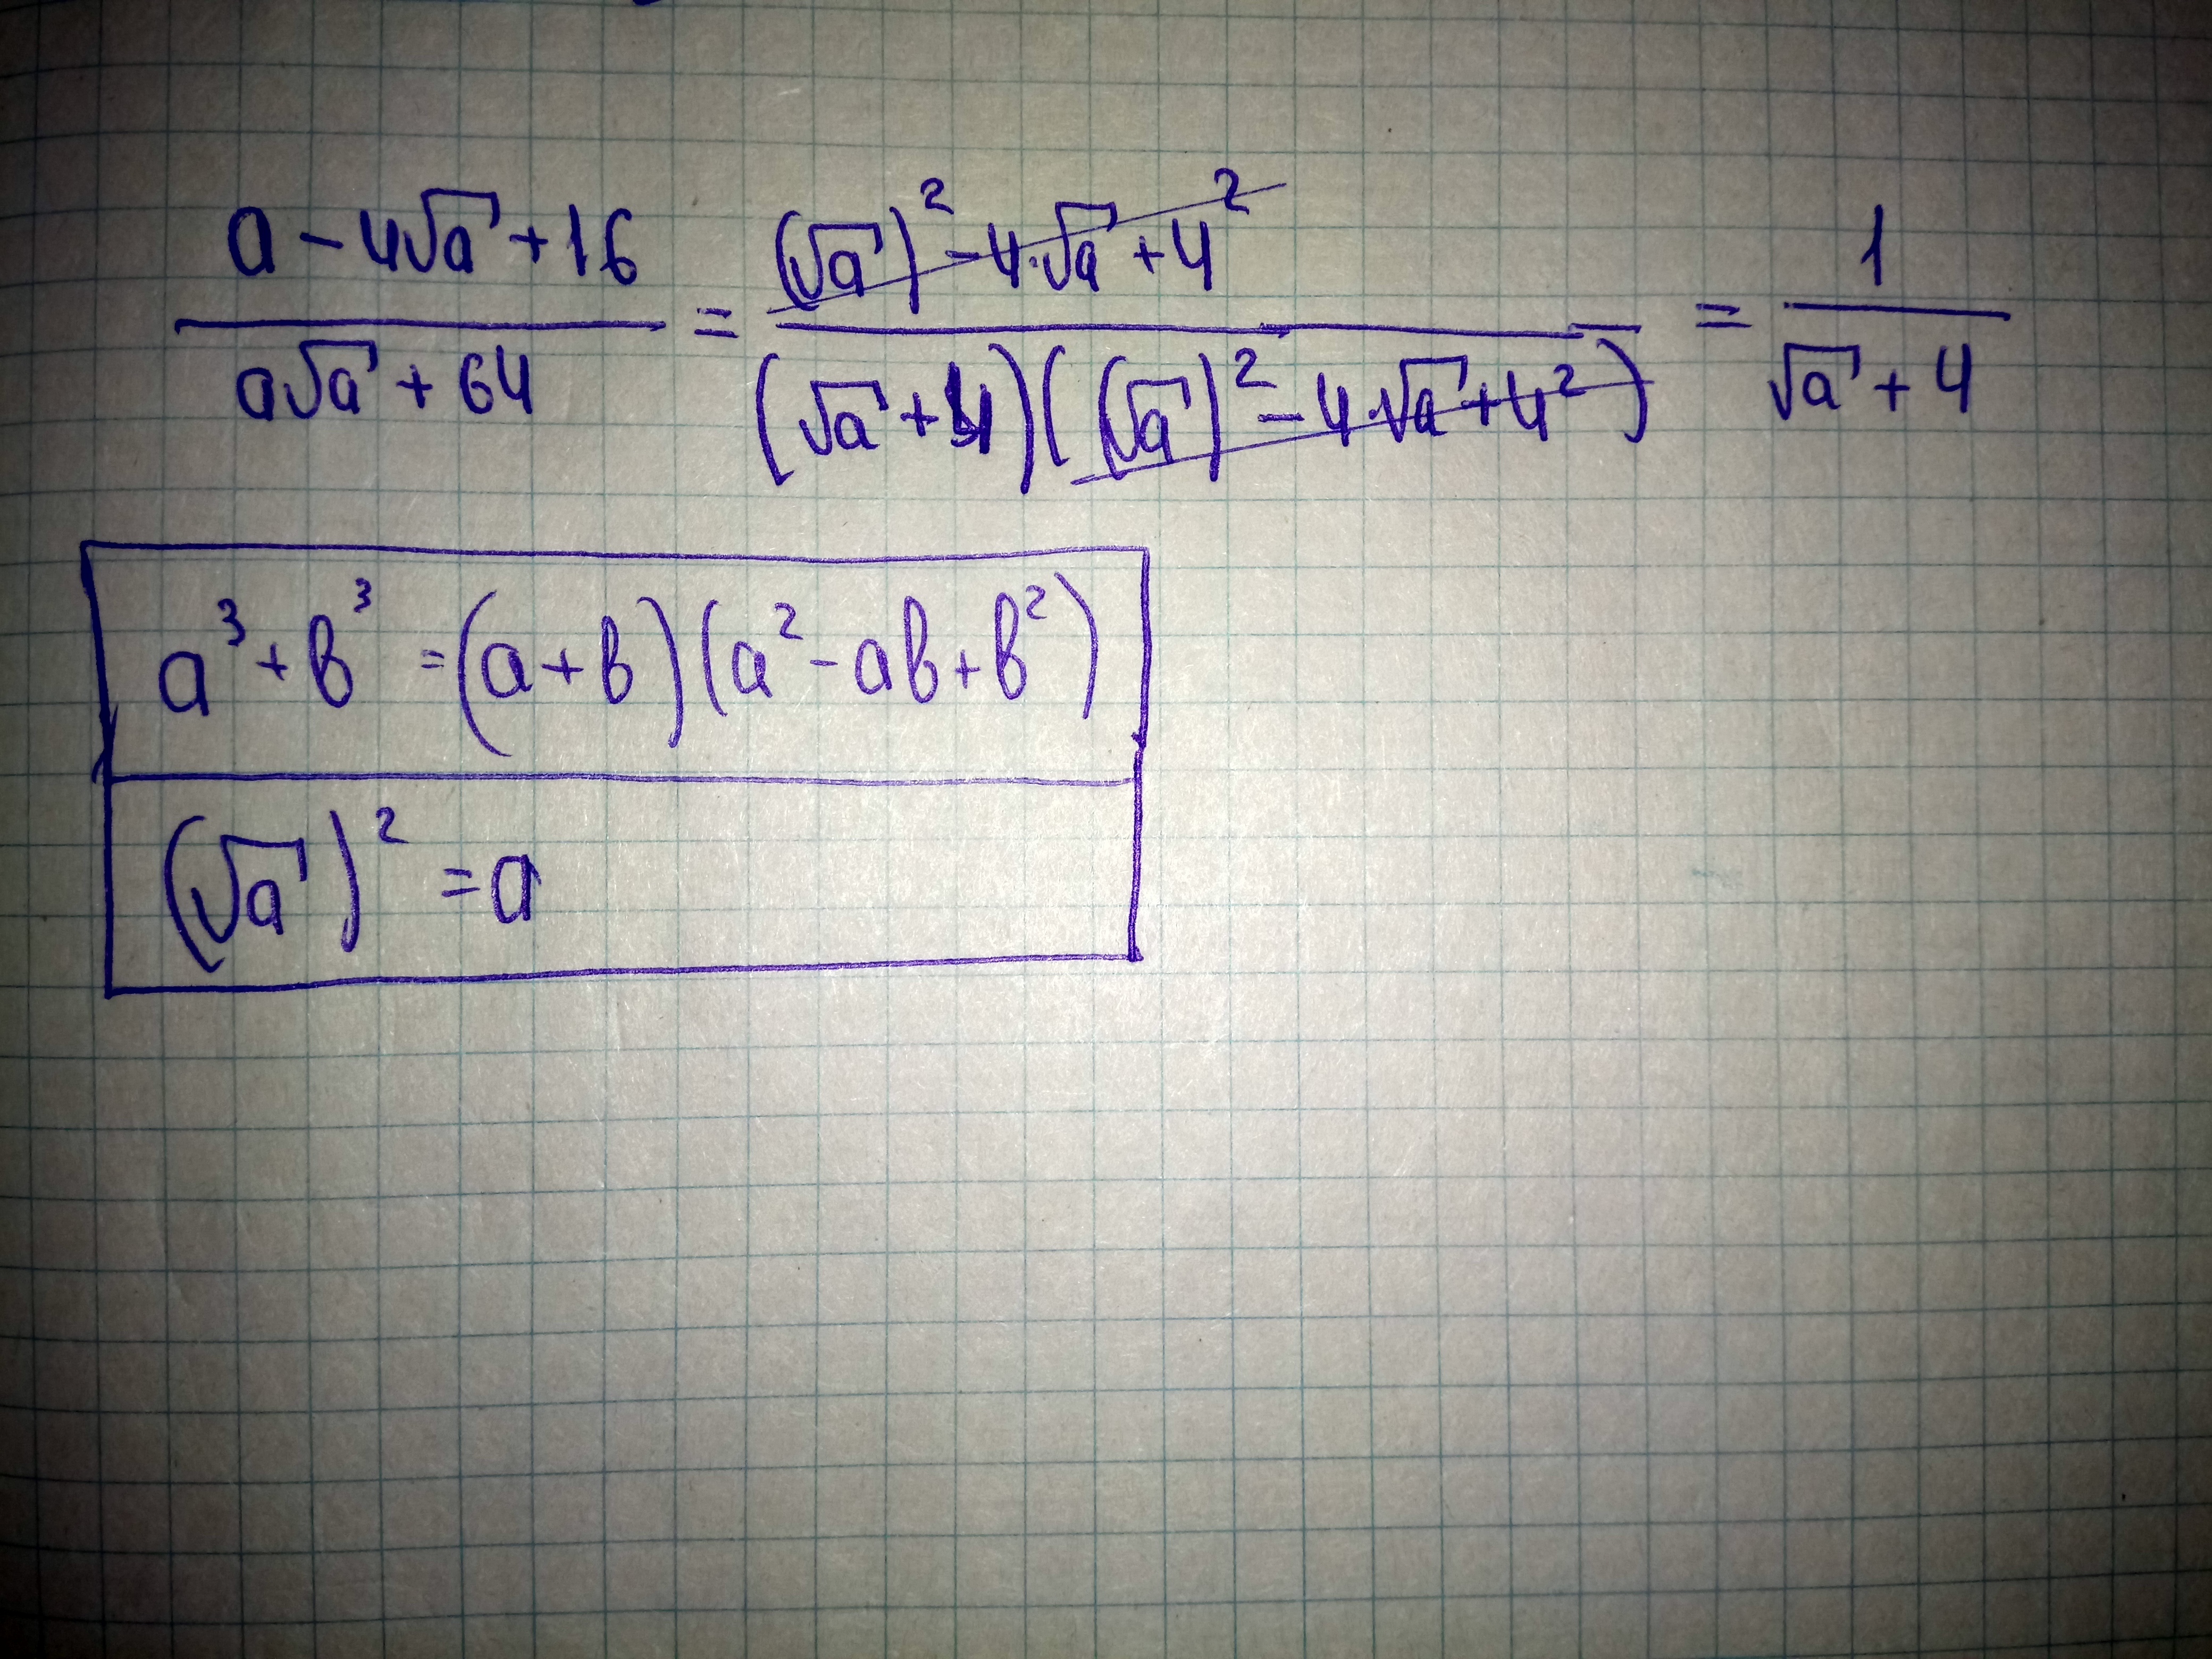 (a - 4√a + 16)/(a√a + 64) = ((√a)² - 4·√a + 4²)/((√a + 4)((√a)² - 4·√a + 4²)) = 1/(√a + 4)
a³ + в³ = (a + в)(a² - aв + в²)
(√a)² = a